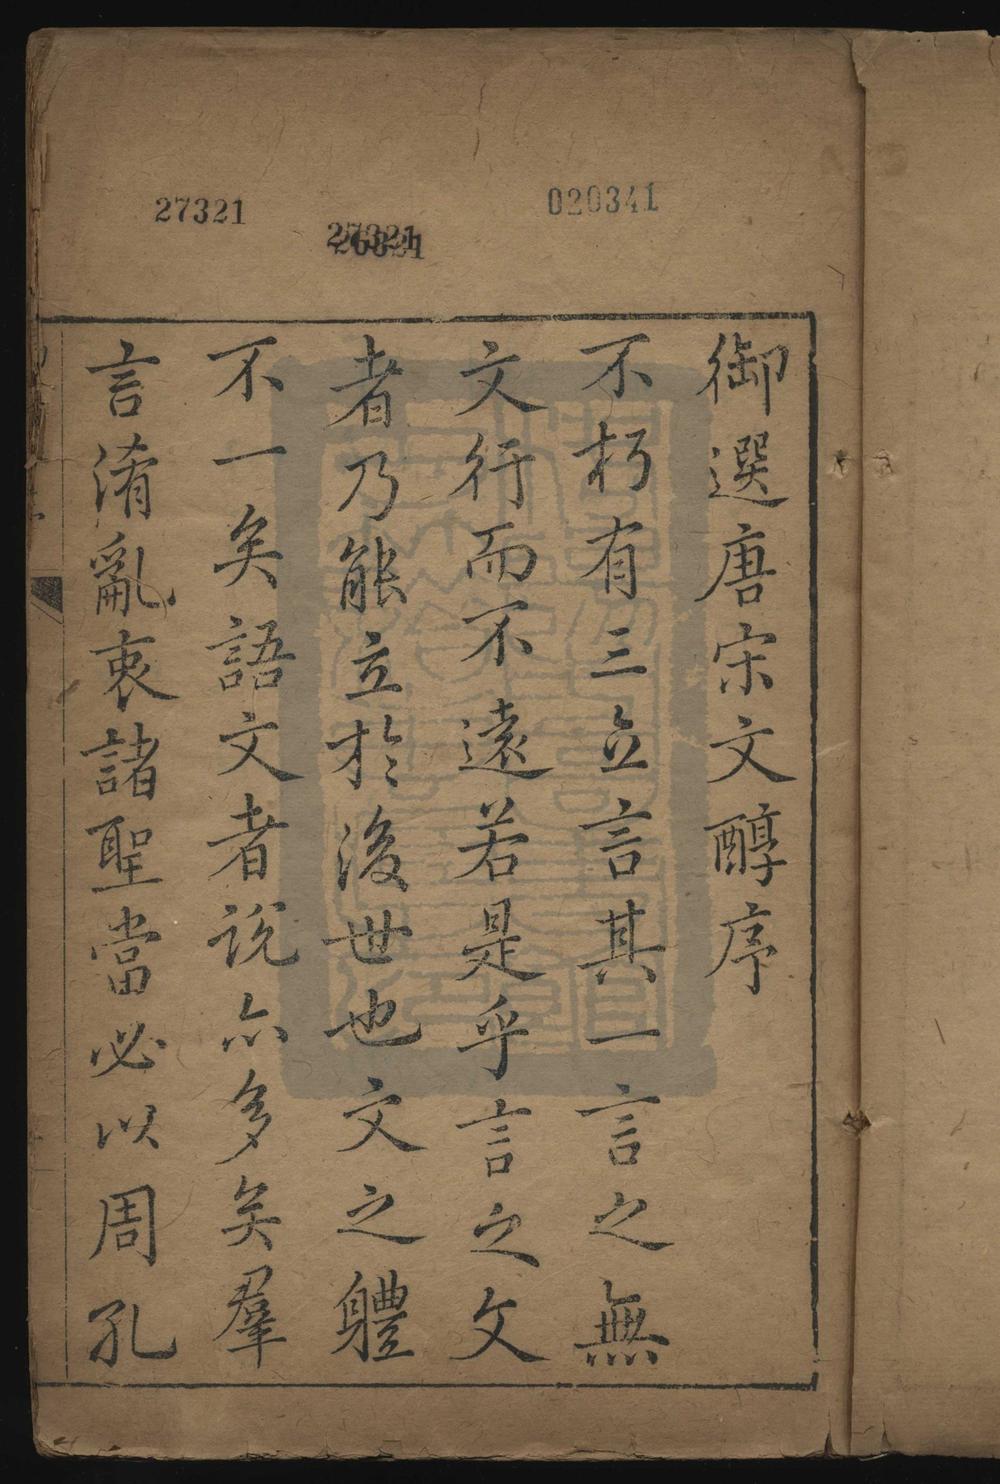 27321
020341
御選唐宋文醇序
不朽有三立言其一言之無
文行而不遠若是乎言之文
者乃能立於後世也文之軆
不一矣語文者說亦多矣羣
言淆亂衷諸聖當必以周孔